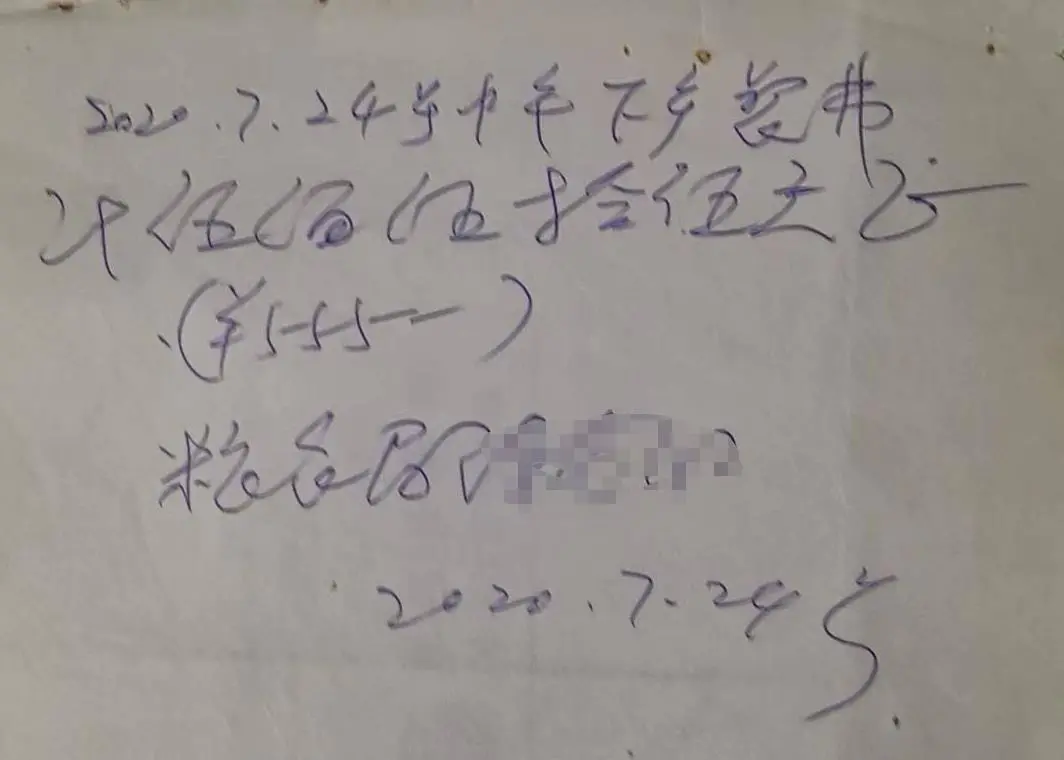 2020.7.24号中午下乡餐费
计伍佰伍拾伍元正
(¥555——)
粮食
2020.7.24号